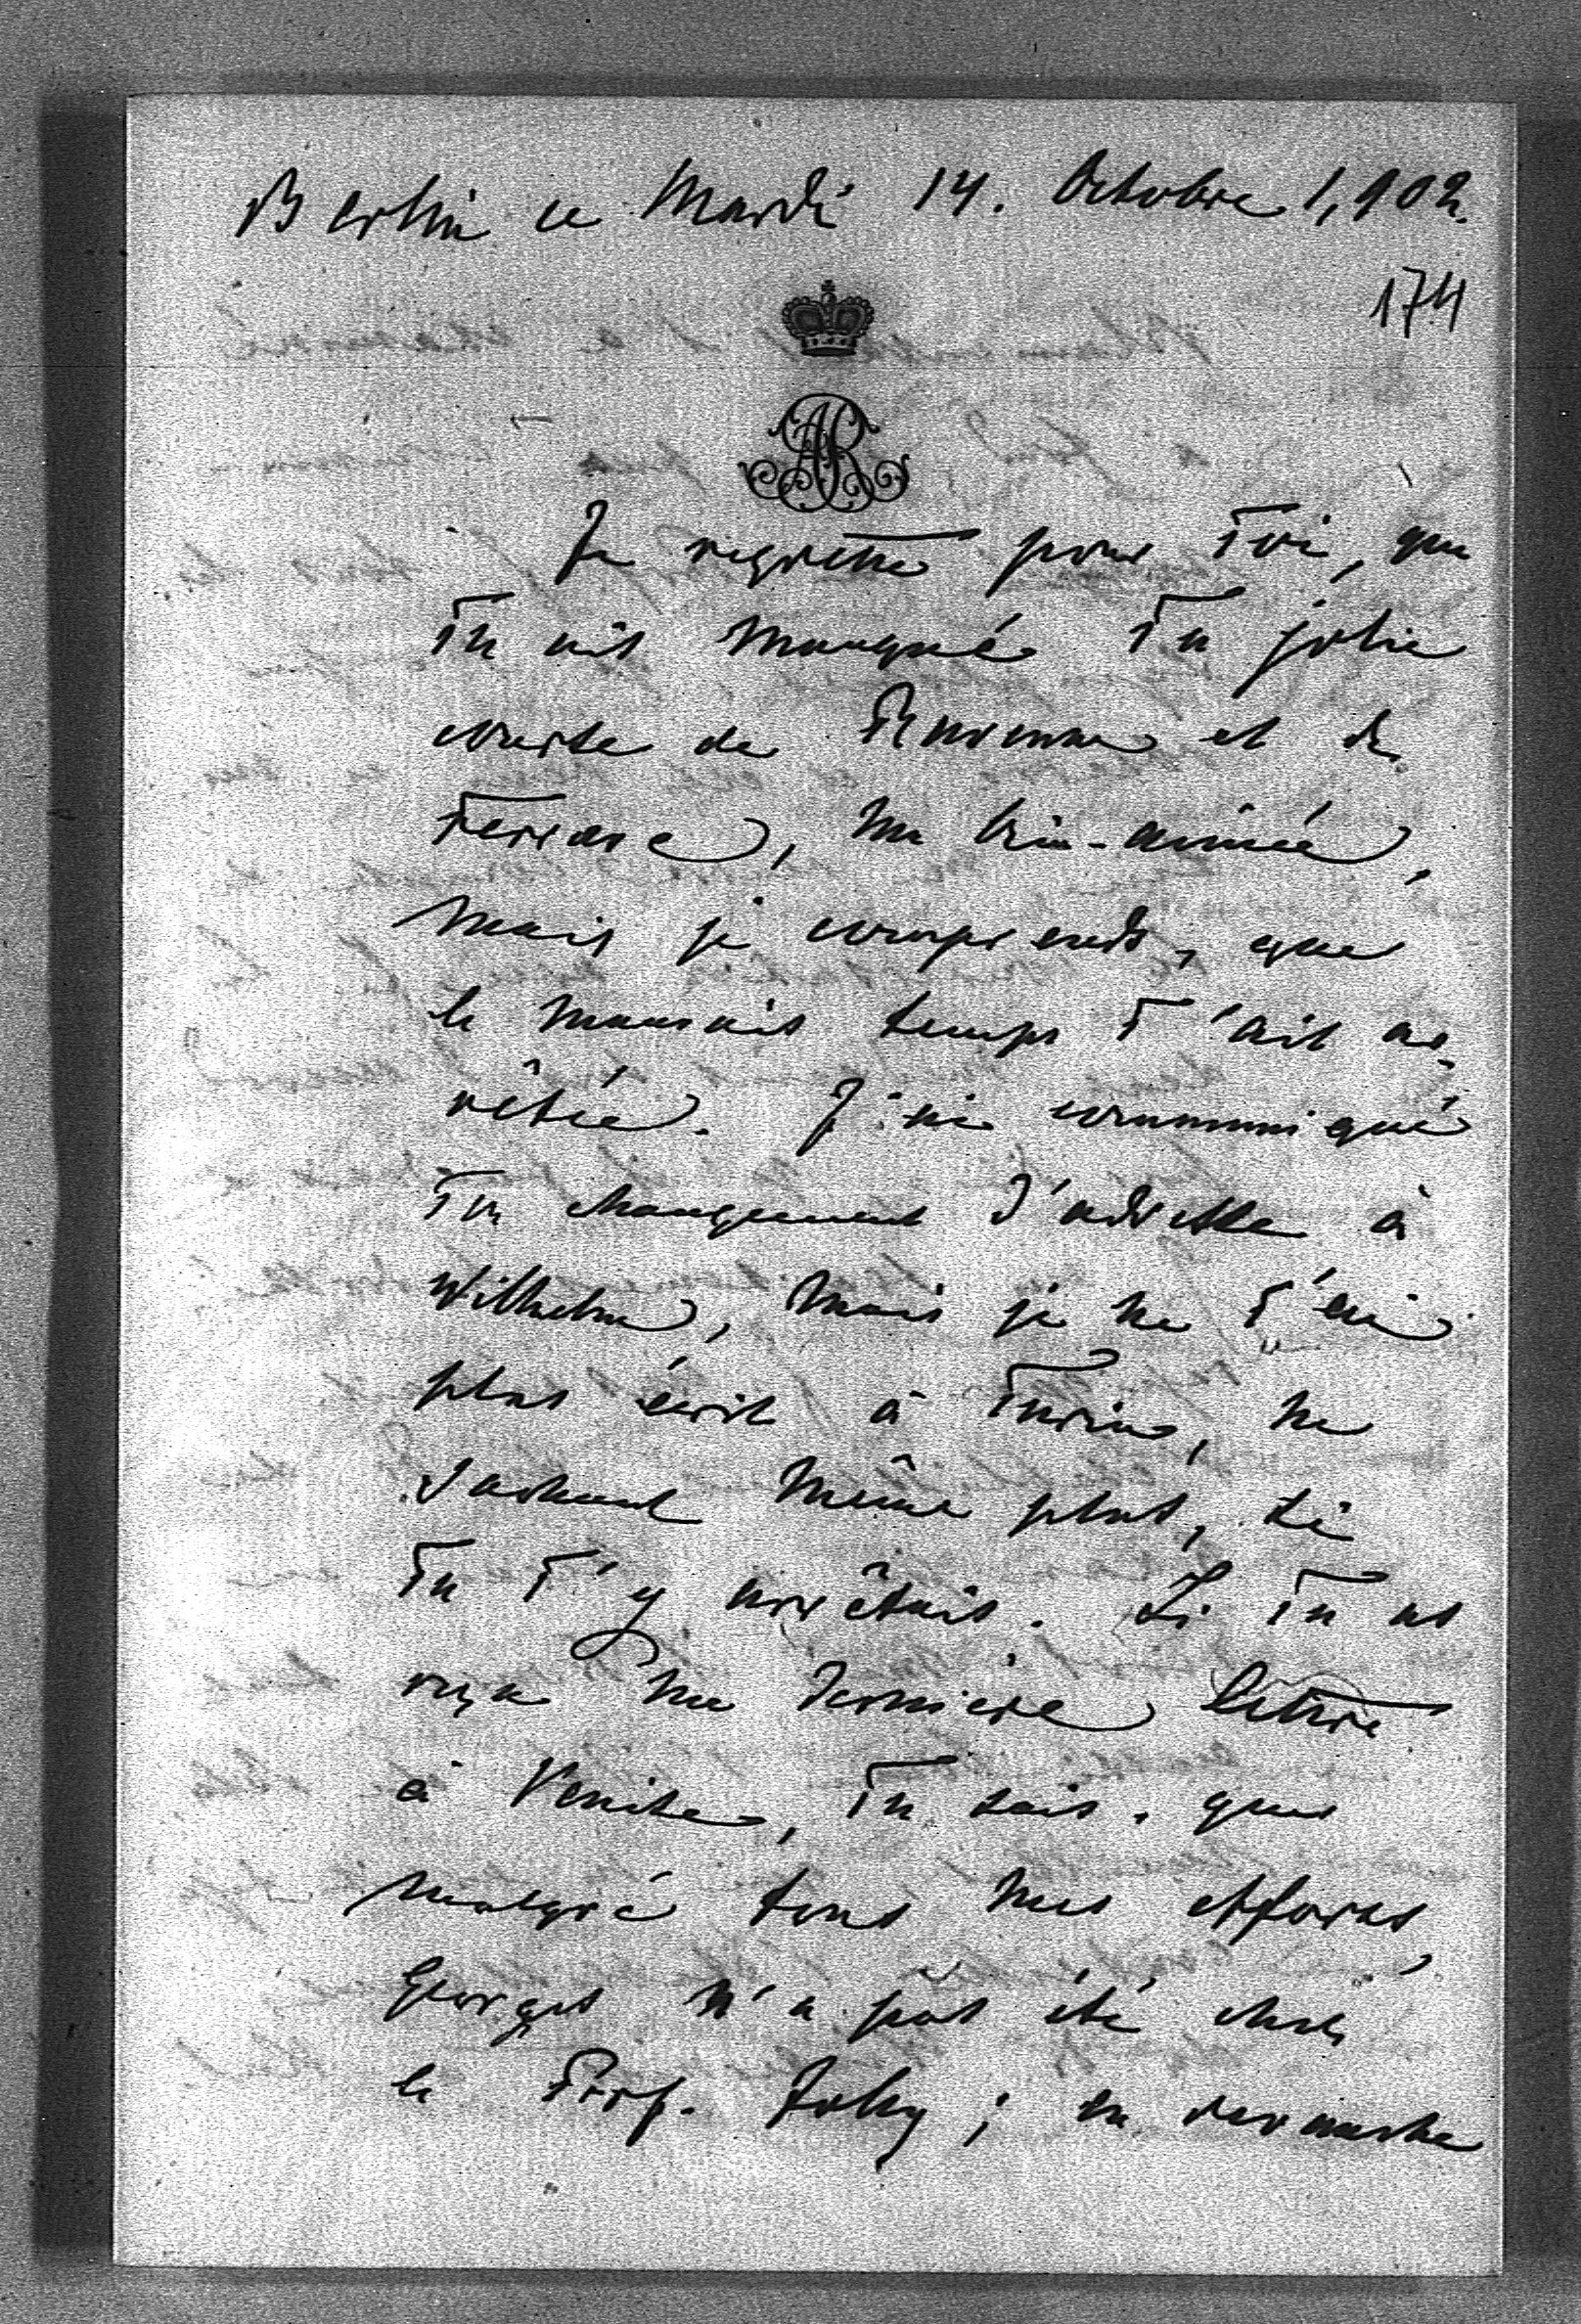 Berlin ce Mardi 14. Octobre 1,902.
174
AR
Je regrette pour Toi, que
Tu ais manqué Ta jolie
course de Ravenne et de
Ferrare, ma bien-aimée,
mais je comprends, que
le mauvais temps T'ait ar-
rêtée. J'ai communiqué
Ton changement d'adresse à
Wilhelm, mais je ne T'ai
plus écrit à Turin, ne
sachant même plus, si
Tu T'y arrêtais. Si Tu as
reçu ma dernière lettre
à Venise, Tu sais, que
malgré tous mes efforts,
Georges n'a pas été chez
le Prof. Joly; en revanche